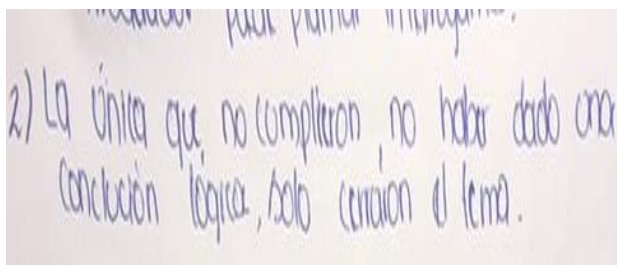 para
2) La única que no cumplieron, no haber dado una
conclución lógica, solo cerraron el tema.